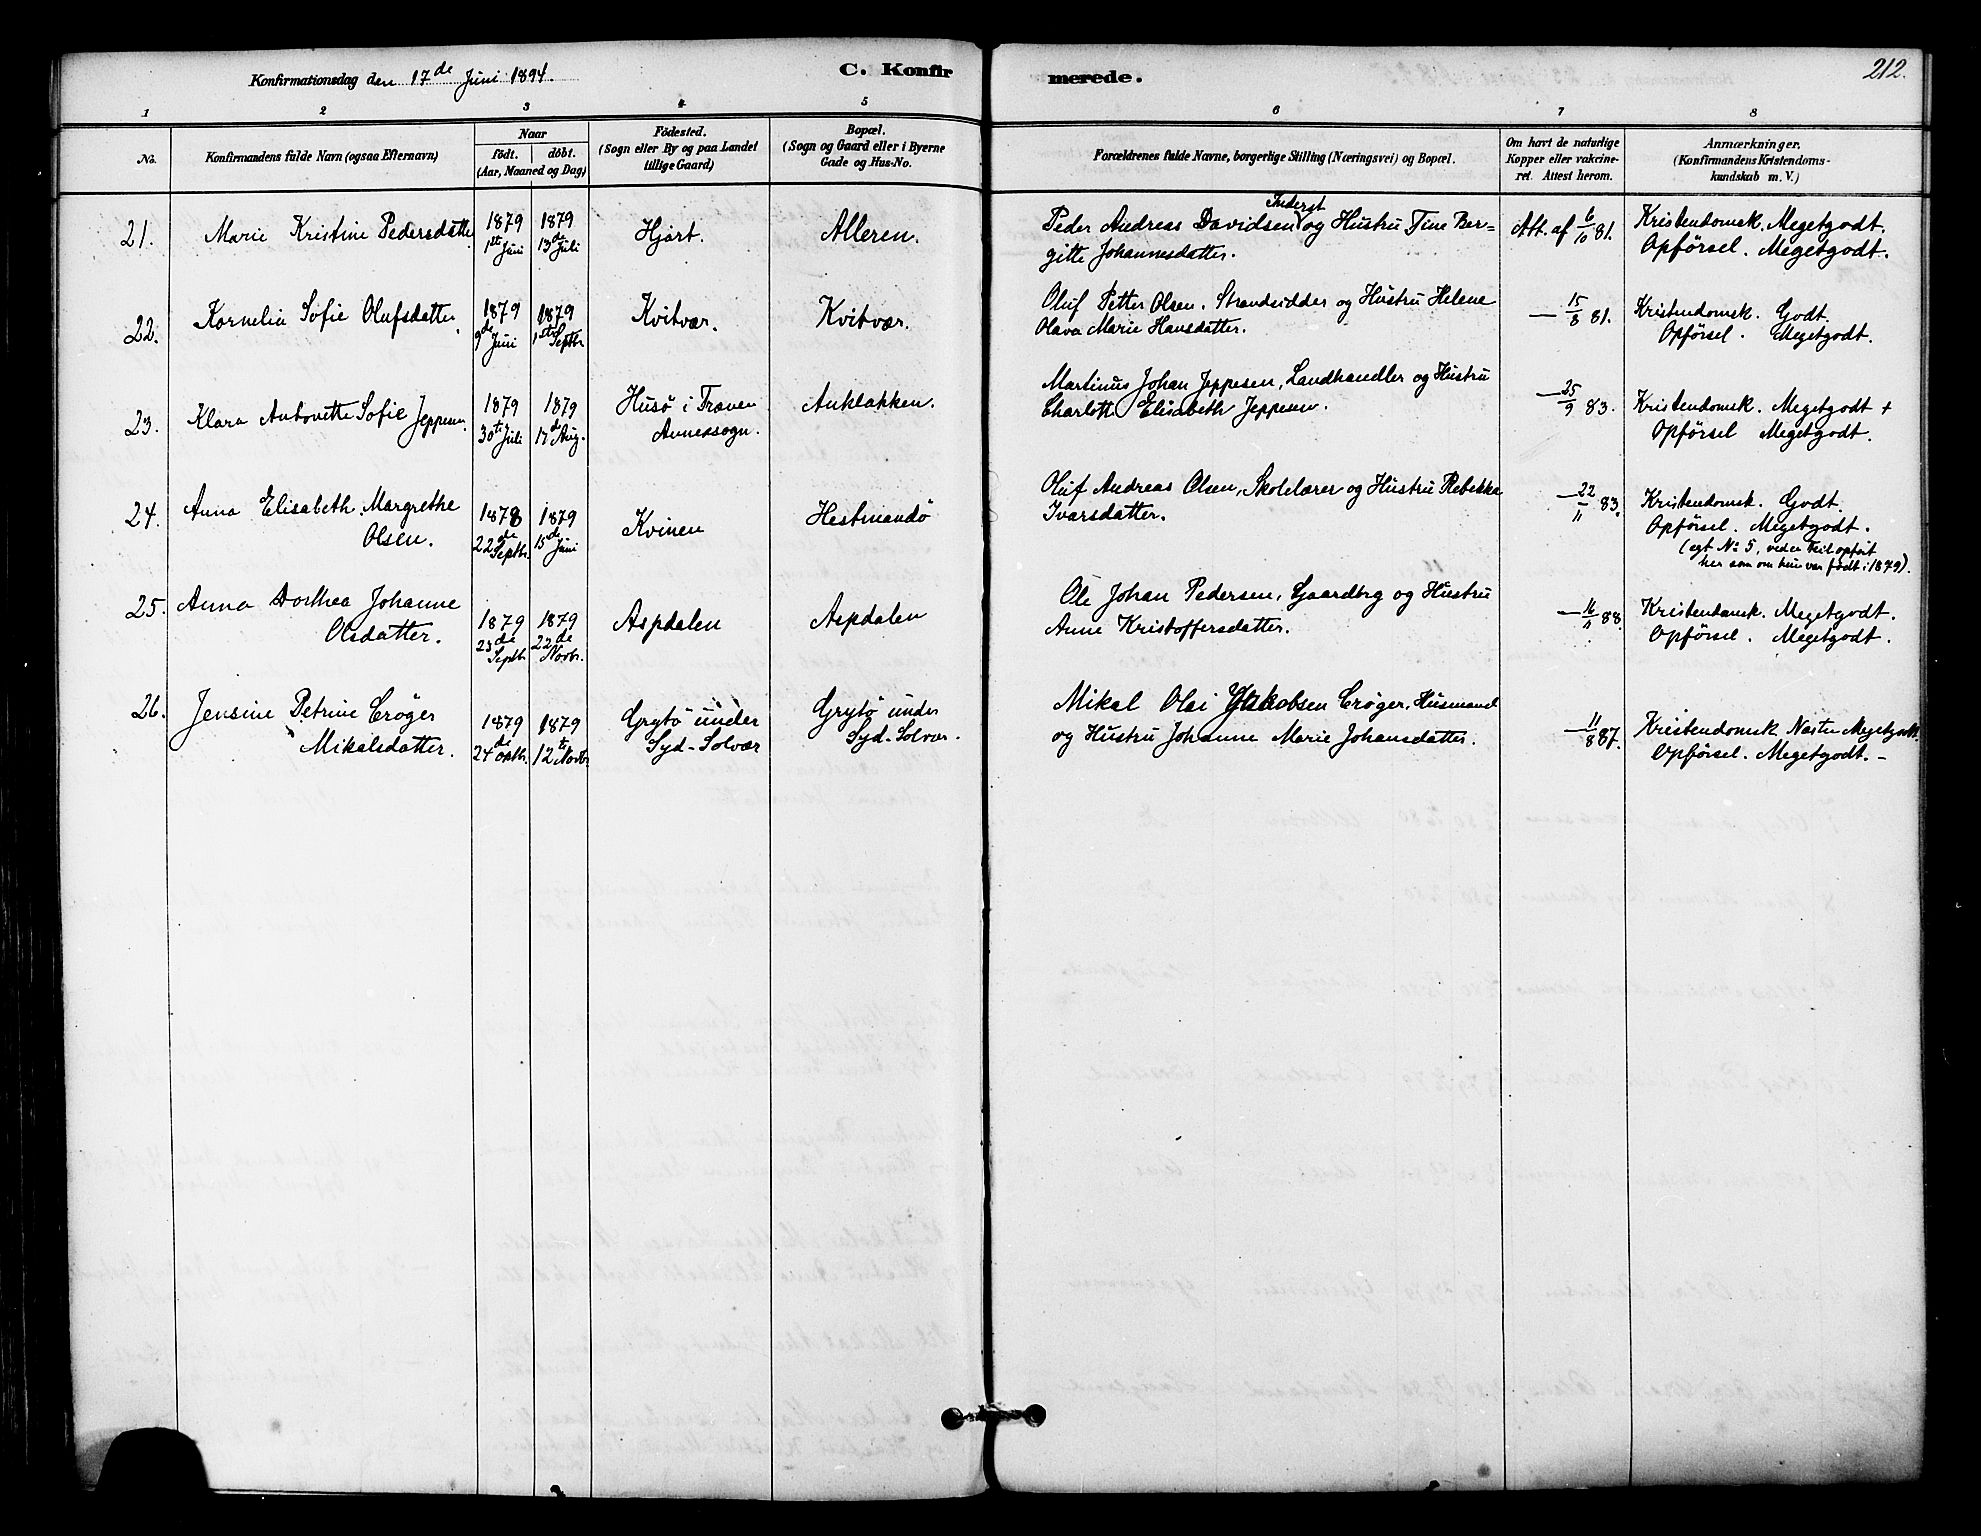 Konfirmationsdag den 17de Juni 1894.
C. Konfirmerede.
212.
1 2 3 4 5 6 7 8
No.
Konfirmandens fulde Navn (ogsaa Efternavn)
Naar
födt. döbt.
(Aar, Maaned og Dag)
Födested.
(Sogn eller By og paa Landet
tillige Gaard)
Bopæl.
(Sogn og Gaard eller i Byerne
Gade og Hus-No.
Forældrenes fulde Navne, borgerlige Stilling (Næringsvei) og Bopæl.
Om havt de naturlige
Kopper eller vakcine-
ret. Attest herom.
Anmærkninger.
(Konfirmandens Kristendoms-
kundskab m. V.)
21. Marie Kristine Pedersdatter 1879 1ste Juni 1879 13de Juli Hjart. Alleren.
Inderst
Peder Andreas Davidsen og Hustru Tine Ber-
gitte Johannesdatter.
Att. af 6/10 81.
Kristendomsk. Megetgodt.
Opförsel. Megetgodt.
22. Kornelia Sofie Olufsdatter. 1879 9de Juni 1879 1ste Septbr. Kvitvær. Kvitvær.
Oluf Petter Olsen. Strandsidder og Hustru Helene
Olava Marie Hansdatter.
— 15/8 81.
Kristendomsk. Godt.
Opförsel. Megetgodt.
23. Klara Antonette Sofie Jeppesen. 1879 30te Juli 1879 17de Aug.
Husö i Træven
Annexsogn.
Anklakken.
Martinus Johan Jeppesen, Landhandler og Hustru
Charlotte Elisabeth Jeppesen.
— 25/9 83.
Kristendomsk. Megetgodt +
Opförsel Megetgodt.
24. Anna Elisabeth Margrethe
Olsen.
1878 22de Septbr. 1879 15de Juni Kvinen Hestmandö
Oluf Andreas Olsen, Skolelærer og Hustru Rebekka
Ivarsdatter.
— 22/11 83.
Kristendomsk. Godt.
Opförsel. Megetgodt.
(egt No 5, ved en Feil opført
her som om hun var født i 1879).
25. Anna Dorthea Johanne
Olsdatter.
1879 23de Septbr. 1879 22de Novbr. Aspdalen Aspdalen
Ole Johan Pedersen, Gaardbrg og Hustru
Anne Kristoffersdatter.
88.
Kristendomsk. Megetgodt.
Opförsel. Megetgodt.
26. Jensine Petrine Cröger
Mikalsdatter.
1879 24de Oktbr. 1879 12te Novbr.
Grytö under
Syd-Solvær
Grytö under
Syd-Solvær.
Mikal Olai Jakobsen Cröger, Husmand
og Hustru Johanne Marie Johansdatter.
— 11/8 87.
Kristendomsk Næsten Megetgodt.
Opförsel. Megetgodt. -